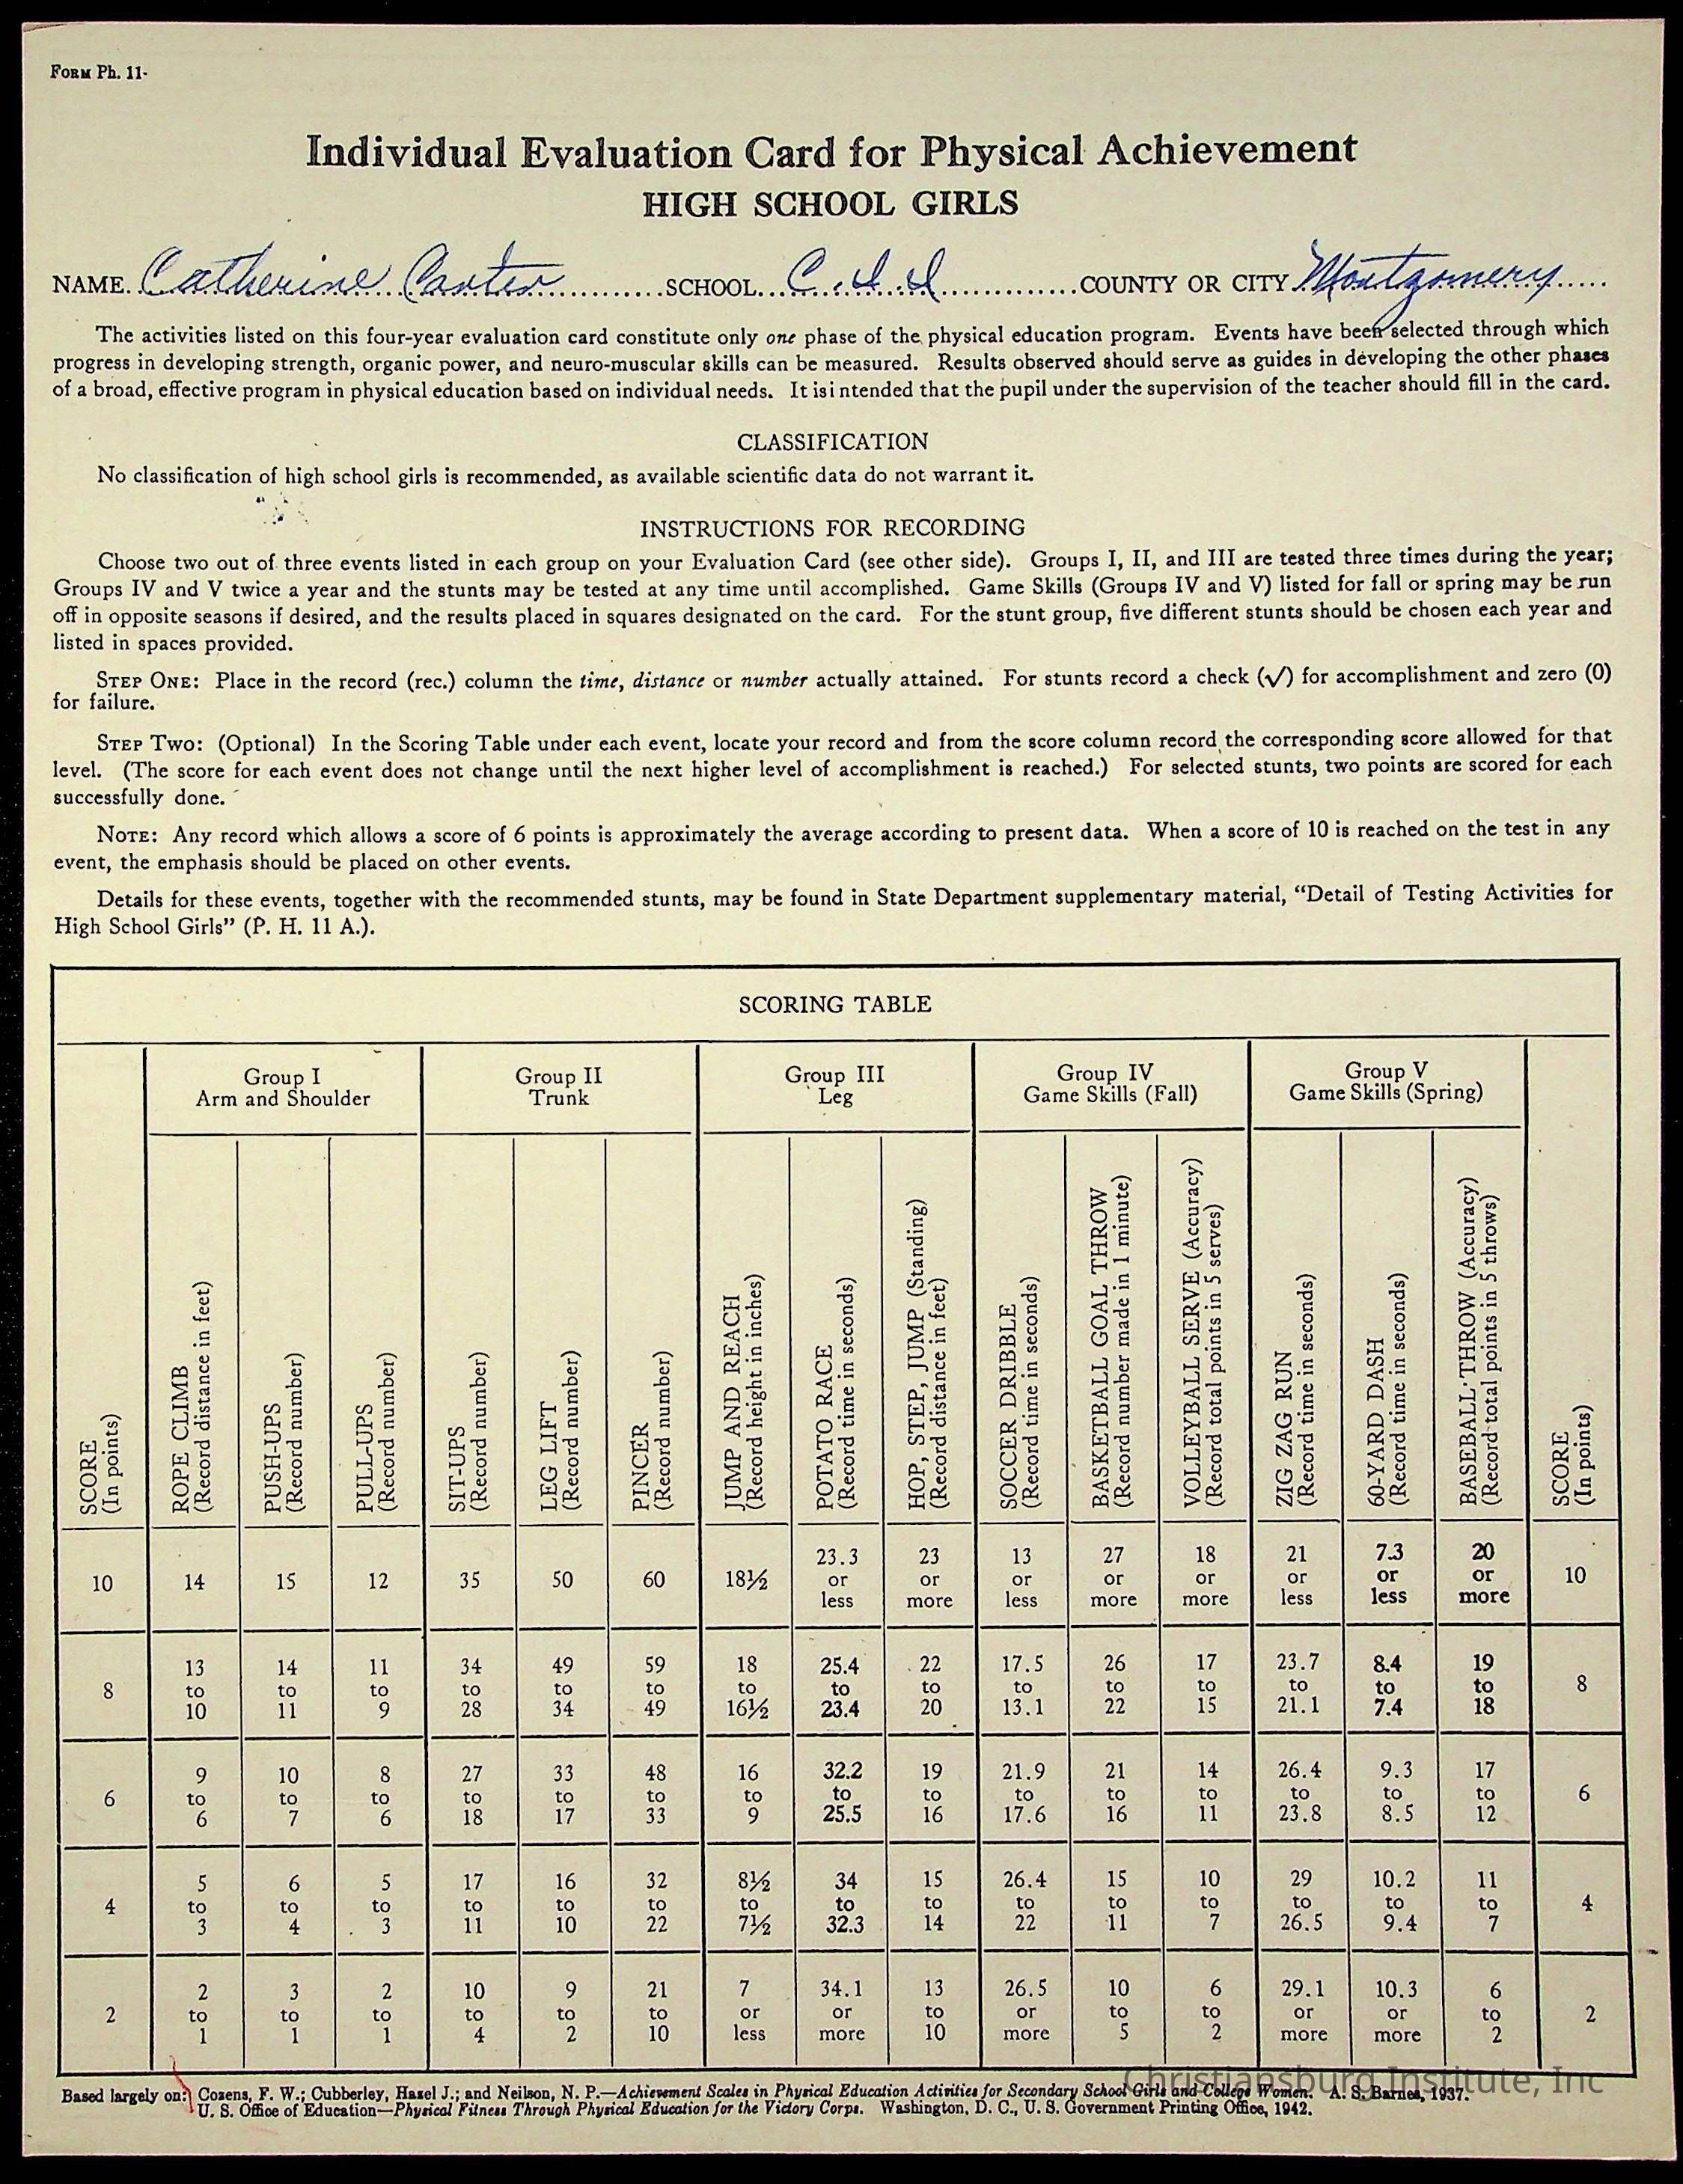 FORM Ph. 11-
Individual Evaluation Card for Physical Achievement
HIGH SCHOOL GIRLS
NAME. Catherine Carter SCHOOL C. I. I. COUNTY OR CITY Montgomery
The activities listed on this four-year evaluation card constitute only one phase of the physical education program. Events have been selected through which
progress in developing strength, organic power, and neuro-muscular skills can be measured. Results observed should serve as guides in developing the other phases
of a broad, effective program in physical education based on individual needs. It isi ntended that the pupil under the supervision of the teacher should fill in the card.
CLASSIFICATION
No classification of high school girls is recommended, as available scientific data do not warrant it.
INSTRUCTIONS FOR RECORDING
Choose two out of three events listed in each group on your Evaluation Card (see other side). Groups I, II, and III are tested three times during the year;
Groups IV and V twice a year and the stunts may be tested at any time until accomplished. Game Skills (Groups IV and V) listed for fall or spring may be run
off in opposite seasons if desired, and the results placed in squares designated on the card. For the stunt group, five different stunts should be chosen each year and
listed in spaces provided.
STEP ONE: Place in the record (rec.) column the time, distance or number actually attained. For stunts record a check (√) for accomplishment and zero (0)
for failure.
STEP TWO: (Optional) In the Scoring Table under each event, locate your record and from the score column record the corresponding score allowed for that
level. (The score for each event does not change until the next higher level of accomplishment is reached.) For selected stunts, two points are scored for each
successfully done.
NOTE: Any record which allows a score of 6 points is approximately the average according to present data. When a score of 10 is reached on the test in any
event, the emphasis should be placed on other events.
Details for these events, together with the recommended stunts, may be found in State Department supplementary material, “Detail of Testing Activities for
High School Girls” (P. H. 11 A.).
SCORING TABLE
Group I Group II Group III Group IV Group V
Arm and Shoulder Trunk Leg Game Skills (Fall) Game Skills (Spring)
SCORE
(In points)
ROPE CLIMB
(Record distance in feet)
PUSH-UPS
(Record number)
PULL-UPS
(Record number)
SIT-UPS
(Record number)
LEG LIFT
(Record number)
PINCER
(Record number)
JUMP AND REACH
(Record height in inches)
POTATO RACE
(Record time in seconds)
HOP, STEP, JUMP (Standing)
(Record distance in feet)
SOCCER DRIBBLE
(Record time in seconds)
BASKETBALL GOAL THROW
(Record number made in 1 minute)
VOLLEYBALL SERVE (Accuracy)
(Record total points in 5 serves)
ZIG ZAG RUN
(Record time in seconds)
60-YARD DASH
(Record time in seconds)
BASEBALL THROW (Accuracy)
(Record total points in 5 throws)
SCORE
(In points)
23.3 23 13 27 18 21 7.3 20
10 14 15 12 35 50 60 18½ or or or or or or or or 10
less more less more more less less more
13 14 11 34 49 59 18 25.4 22 17.5 26 17 23.7 8.4 19
8 to to to to to to to to to to to to to to to 8
10 11 9 28 34 49 16½ 23.4 20 13.1 22 15 21.1 7.4 18
9 10 8 27 33 48 16 32.2 19 21.9 21 14 26.4 9.3 17
6 to to to to to to to to to to to to to to to 6
6 7 6 18 17 33 9 25.5 16 17.6 16 11 23.8 8.5 12
5 6 5 17 16 32 8½ 34 15 26.4 15 10 29 10.2 11
4 to to to to to to to to to to to to to to to 4
3 4 3 11 10 22 7½ 32.3 14 22 11 7 26.5 9.4 7
2 3 2 10 9 21 7 34.1 13 26.5 10 6 29.1 10.3 6
2 to to to to to to or or to or to to or or to 2
1 1 1 4 2 10 less more 10 more 5 2 more more 2
Christiansburg Institute, Inc
Based largely on: Cozens, F. W.; Cubberley, Hazel J.; and Neilson, N. P.—Achievement Scales in Physical Education Activities for Secondary School Girls and College Women. A. S. Barnes, 1937.
U. S. Office of Education—Physical Fitness Through Physical Education for the Victory Corps. Washington, D. C., U. S. Government Printing Office, 1942.